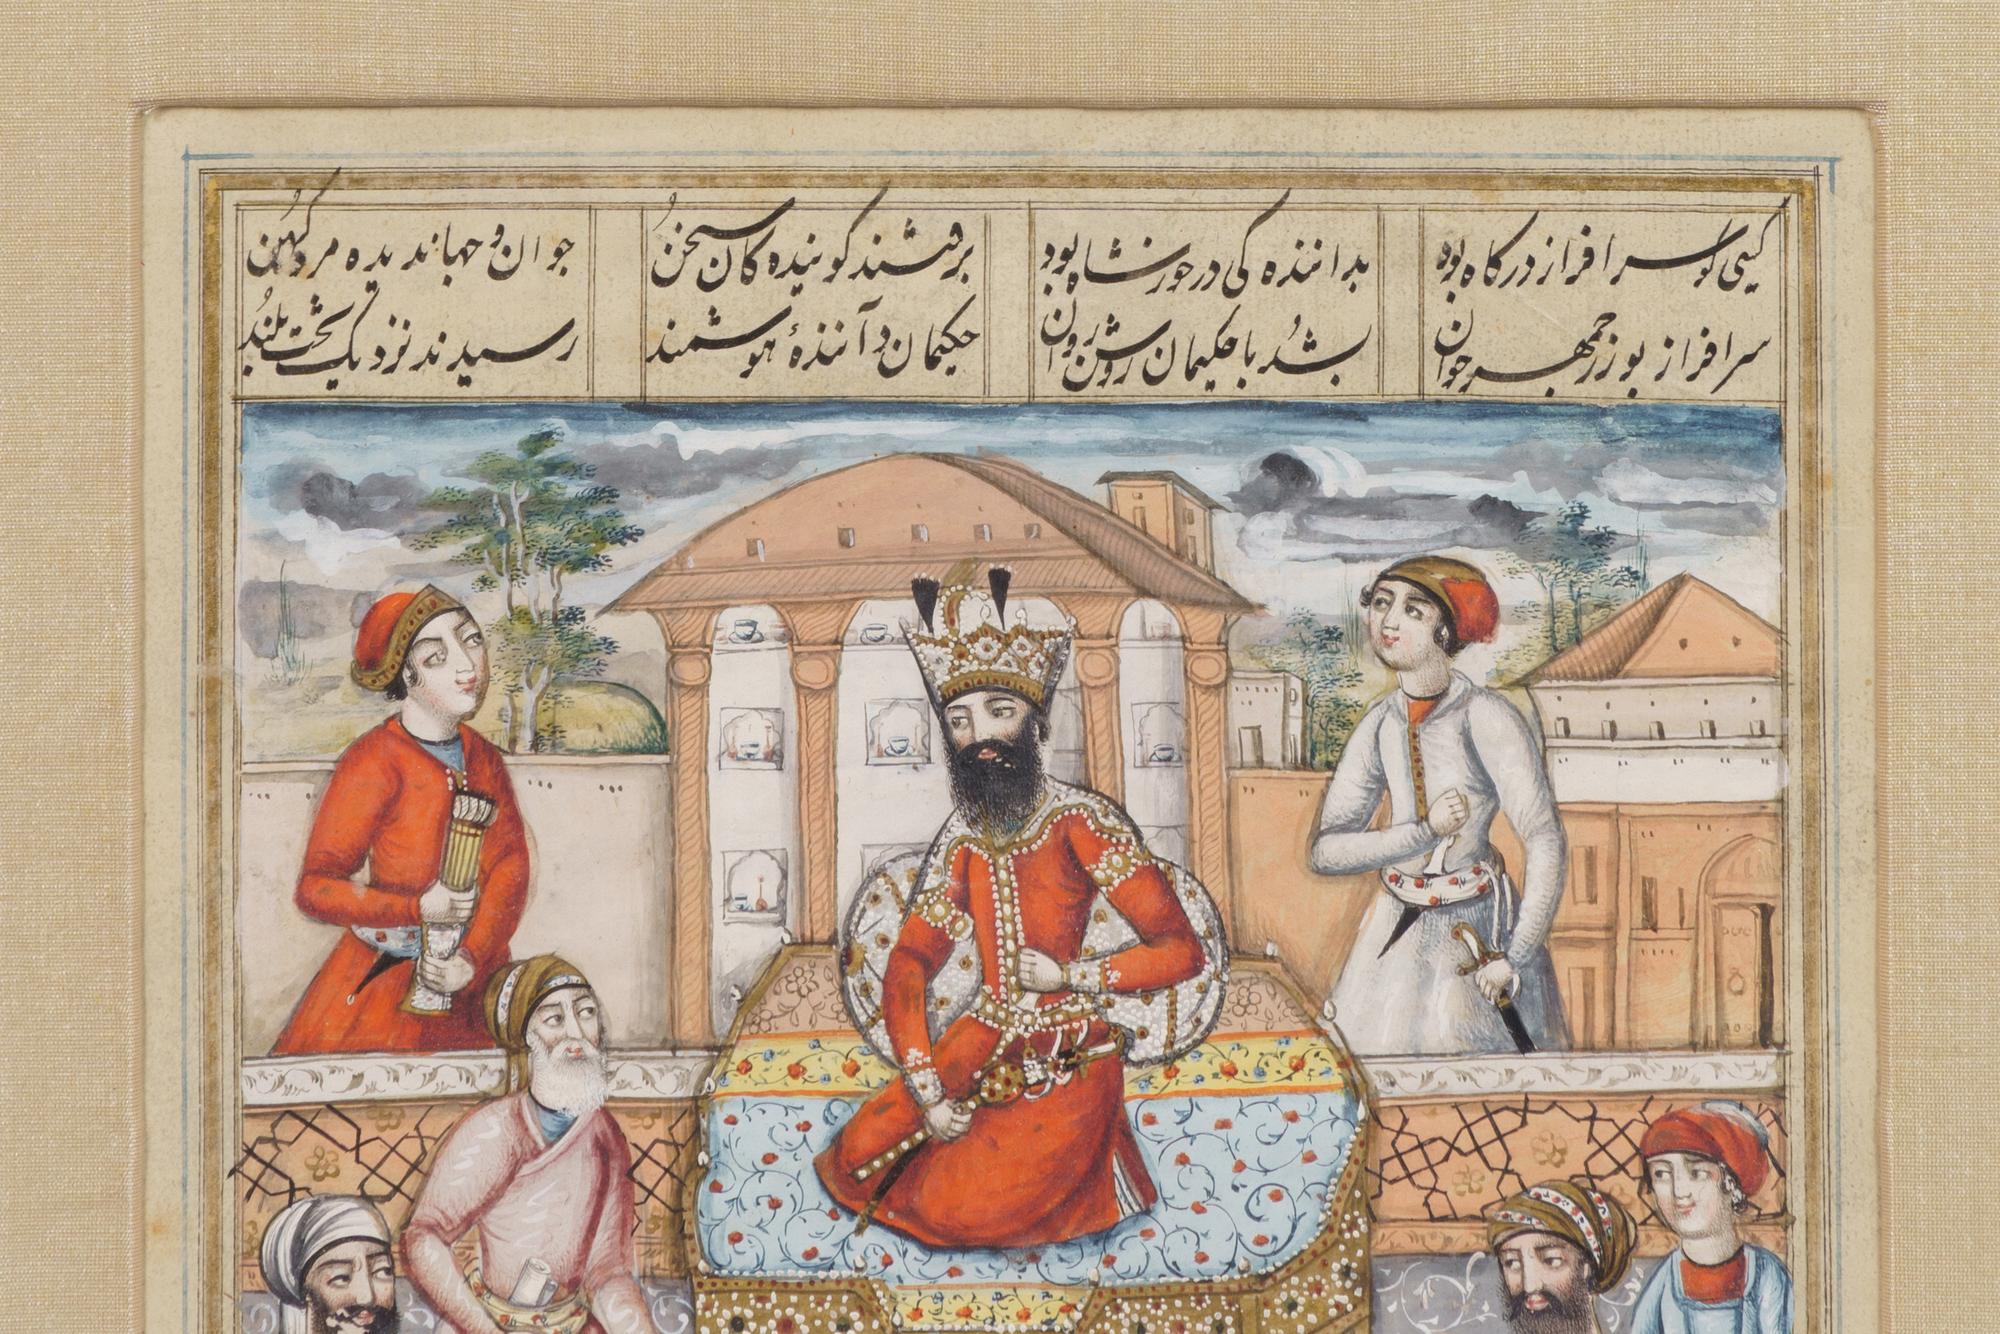 کسی کو سرافراز درکاه بود بداننده کی در خور شاه بود برفتند کوینده کان سخن جوان و جهاندیده مرد کهن
سرافراز بوزرجمهر جوان بشد با حکیمان روشن روان حکیمان دانندهٔ هوشمند رسیدند نزدیک تخت بلند